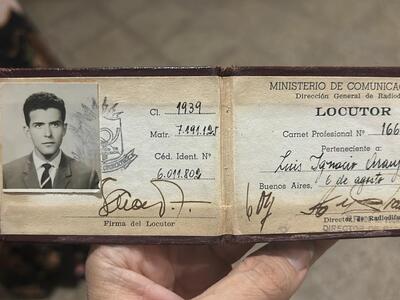 Cl. 1939
Matr. 7.191.125
Céd. Ident. Nº
6.011.802
Firma del Locutor
MINISTERIO DE COMUNICAC
Dirección General de Radiod
LOCUTOR
Carnet Profesional Nº 166
Perteneciente a:
Luis Ignacio
Buenos Aires, 6 de agosto
Director de Radiodifu